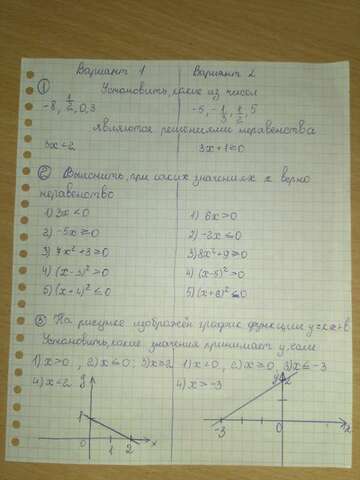 Вариант 1 Вариант 2
① Установить, какие из чисел
-8, 1/2, 0,3 -5, -1/3, 1/2, 5
являются решениями неравенства
3x<2 3x+1≤0
② Выяснить, при каких значениях x верно
неравенство
1) 3x<0 1) 6x>0
2) -5x≥0 2) -2x≤0
3) 7x²+3≥0 3) 8x²+9≥0
4) (x-3)²>0 4) (x-5)²>0
5) (x+4)²≤0 5) (x+8)²≤0
③ На рисунке изображён график функции y=kx+b
Установить, какие значения принимает y, если
1) x>0, 2) x≤0; 3) x≥2 1) x<0, 2) x≥0, 3) x≤-3
4) x<2 y 4) x>-3 y 2
1
0 1 2 x -3 x